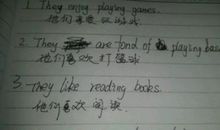 1. They enjoy playing games.
他们喜爱玩游戏
2. They are fond of playing bas
他们喜欢打
3. They like reading books.
他们喜欢阅读.